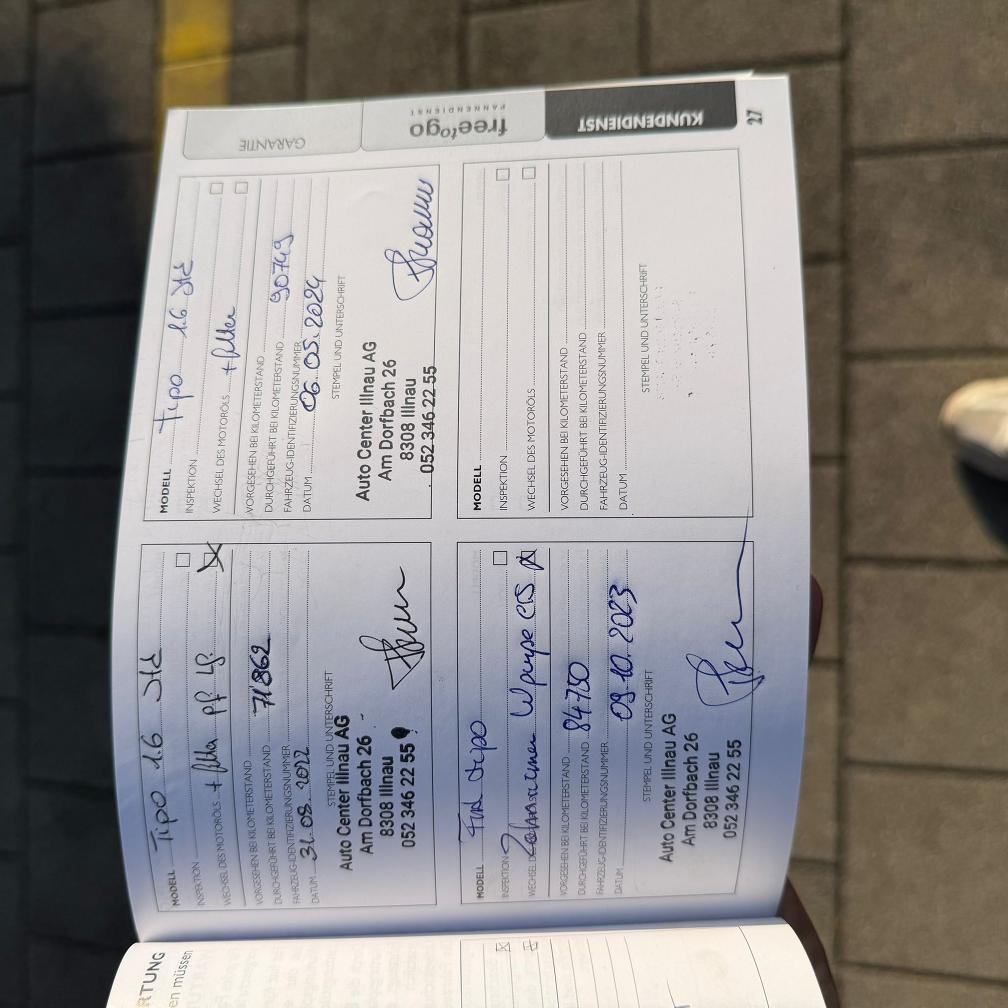 MODELL Tipo 1.6 Jtd
INSPEKTION
WECHSEL DES MOTORÖLS + filter pf Lf.
VORGESEHEN BEI KILOMETERSTAND
DURCHGEFÜHRT BEI KILOMETERSTAND 71862
FAHRZEUG-IDENTIFIZIERUNGSNUMMER
DATUM 31.08.2022
STEMPEL UND UNTERSCHRIFT
Auto Center Illnau AG
Am Dorfbach 26
8308 Illnau
052 346 22 55
MODELL Tipo 1.6 Jtd
INSPEKTION
WECHSEL DES MOTORÖLS + filter
VORGESEHEN BEI KILOMETERSTAND
DURCHGEFÜHRT BEI KILOMETERSTAND 90749
FAHRZEUG-IDENTIFIZIERUNGSNUMMER
DATUM 06.05.2024
STEMPEL UND UNTERSCHRIFT
Auto Center Illnau AG
Am Dorfbach 26
8308 Illnau
052 346 22 55
MODELL Fiat tipo
INSPEKTION
WECHSEL Zahnriemen Wpumpe
VORGESEHEN BEI KILOMETERSTAND
DURCHGEFÜHRT BEI KILOMETERSTAND 84750
FAHRZEUG-IDENTIFIZIERUNGSNUMMER
DATUM 09.10.2023
STEMPEL UND UNTERSCHRIFT
Auto Center Illnau AG
Am Dorfbach 26
8308 Illnau
052 346 22 55
MODELL
INSPEKTION
WECHSEL DES MOTORÖLS
VORGESEHEN BEI KILOMETERSTAND
DURCHGEFÜHRT BEI KILOMETERSTAND
FAHRZEUG-IDENTIFIZIERUNGSNUMMER
DATUM
STEMPEL UND UNTERSCHRIFT
GARANTIE
free to go
PANNENDIENST
KUNDENDIENST
27
RTUNG
en müssen